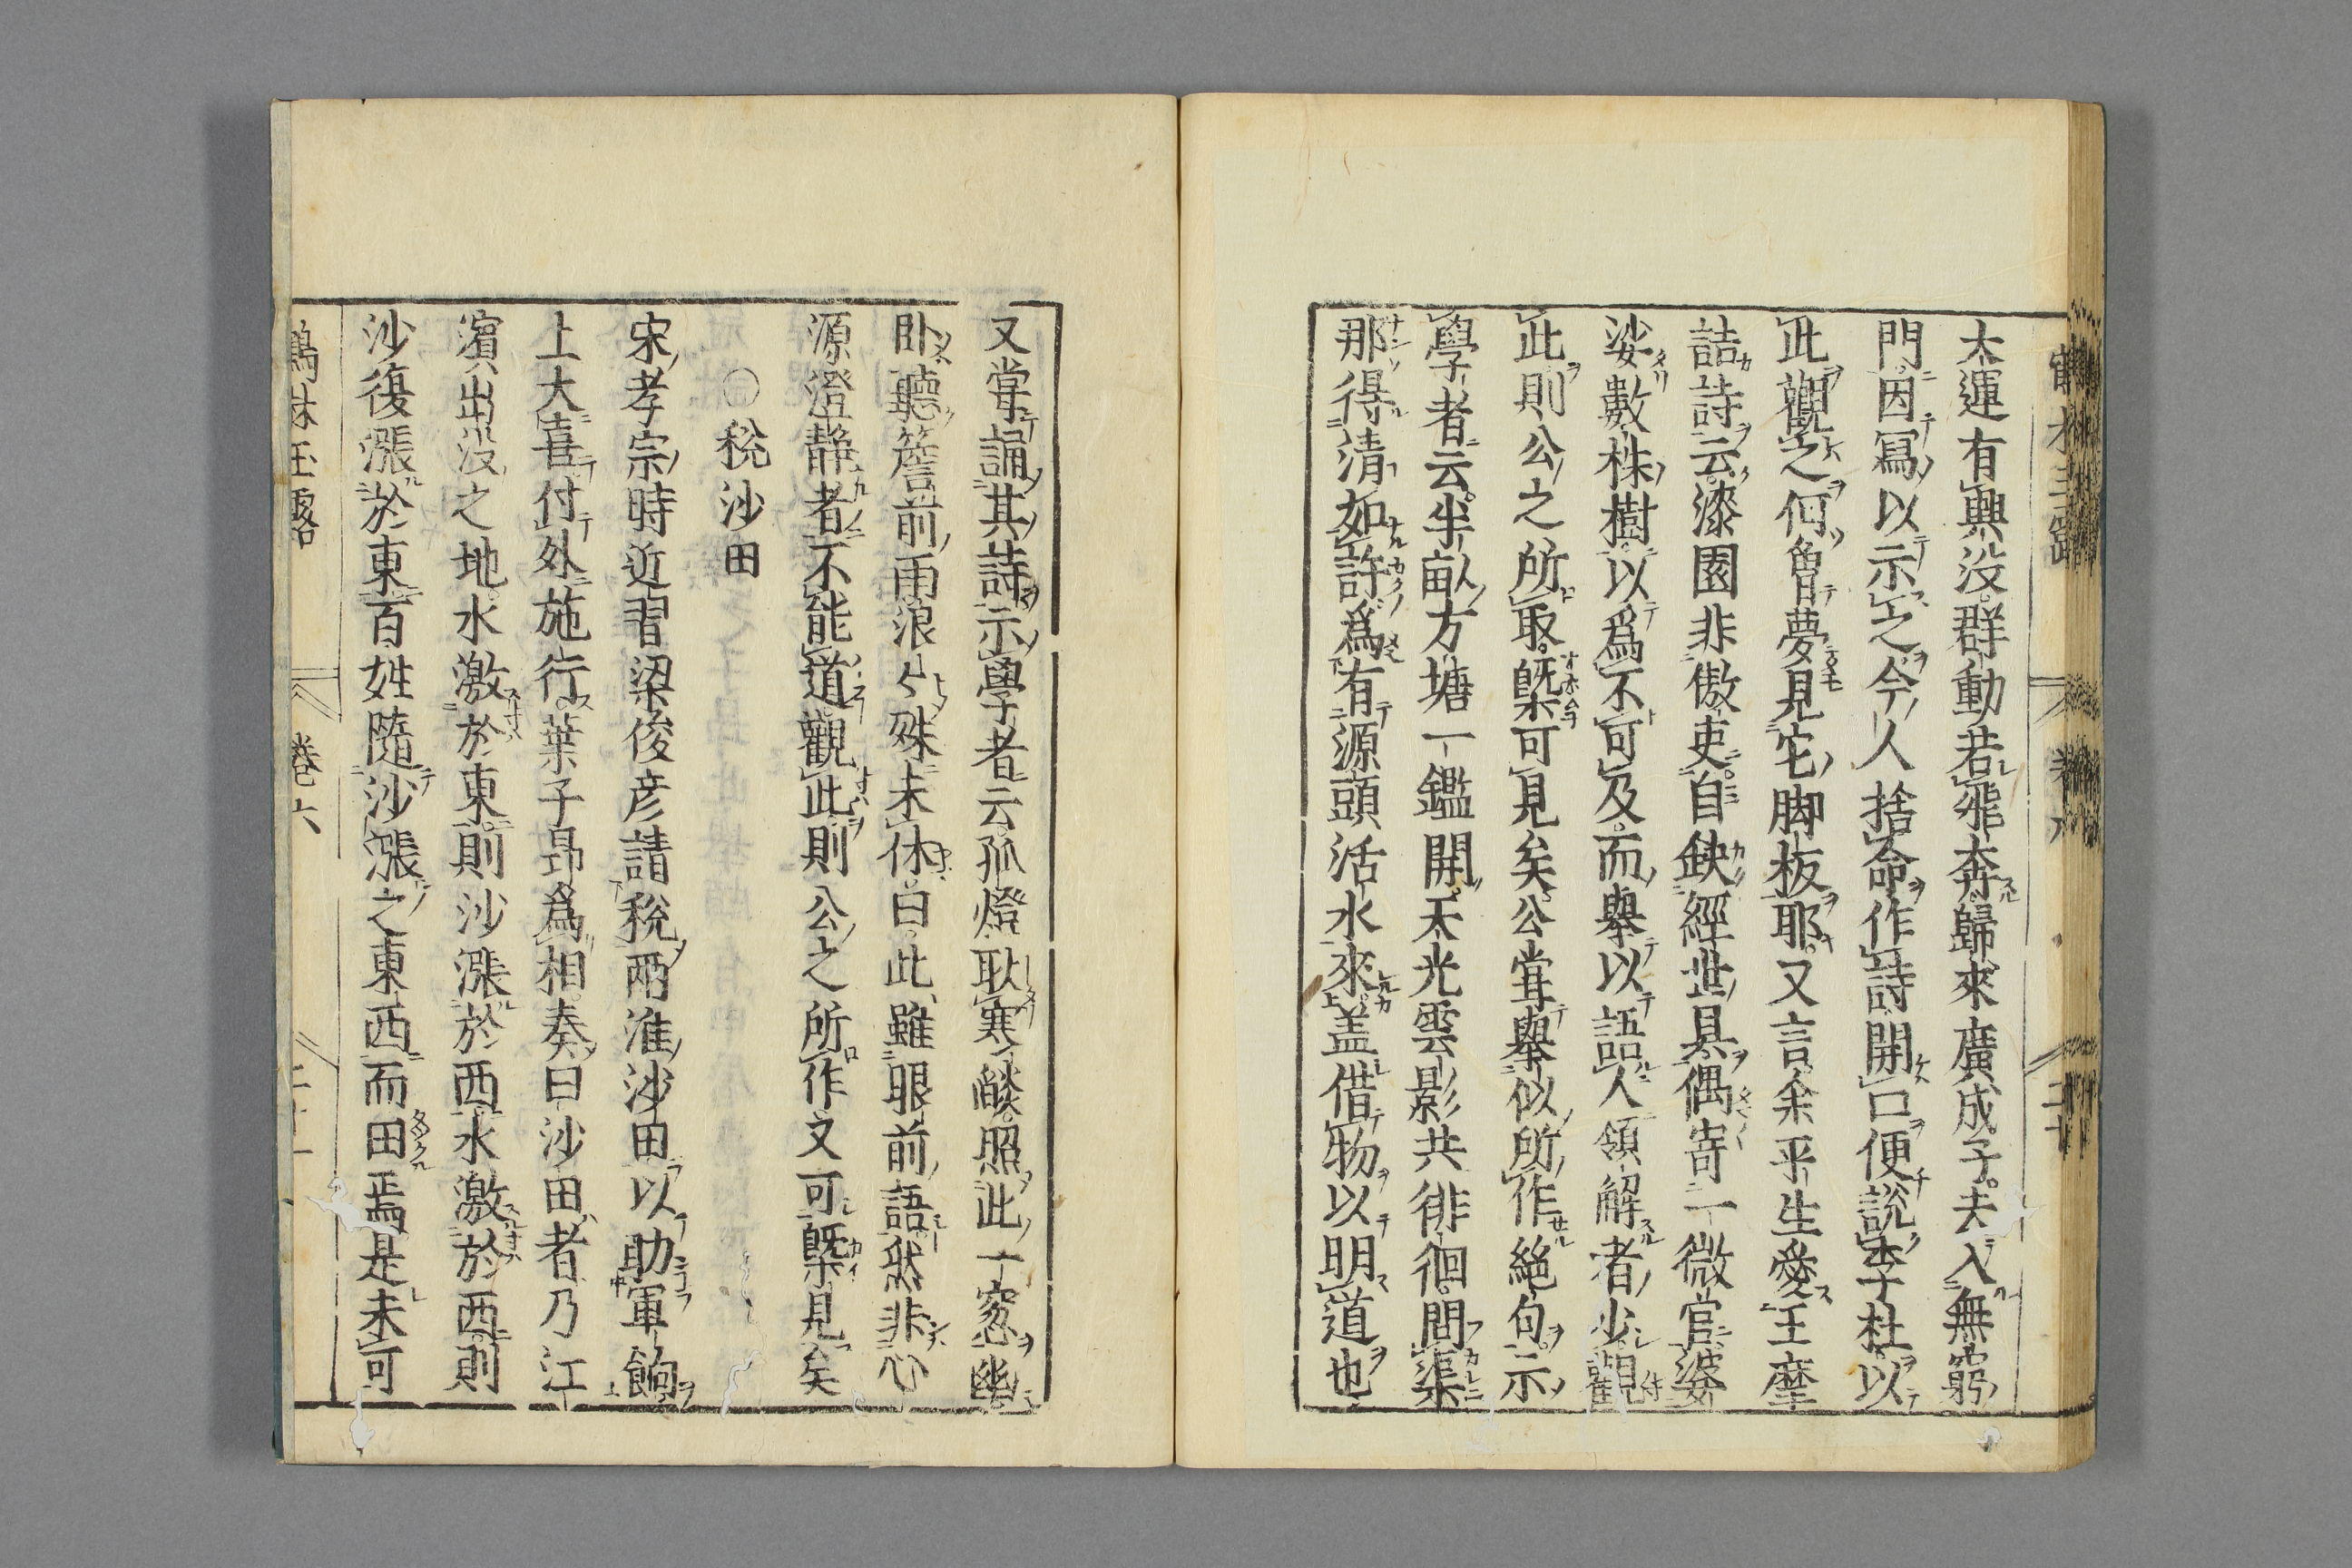 大運有興没群動若飛奔歸來廣成子去入無窮
門因冩以示之今人捨命作詩開口便説李杜以
此觀之何曽夢見它脚板耶又言余平生愛王摩
詰詩云漆園非傲吏自缺經世具偶寄一微官婆
娑數株樹以爲不可及而舉以語人領解者少觀
此則公之所取槩可見矣公甞舉似所作絶句示
學者云半畝方塘一鑑開天光雲影共徘徊問渠
那得清如許爲有源頭活水來盖借物以明道也
又甞誦其詩示學者云孤燈耿寒燄照此一窓幽
卧聽簷前雨浪々殊未休曰此雖眼前語然非心
源澄静者不能道觀此則公之所作文可槩見矣
○税沙田
宋孝宗時近習梁俊彦請税兩淮沙田以助軍餉
上大喜付外施行葉子昻爲相奏曰沙田者乃江
濱出没之地水激於東則沙漲於西水激於西則
沙復漲於東百姓隨沙漲之東西而田焉是未可
鶴林玉露 卷六